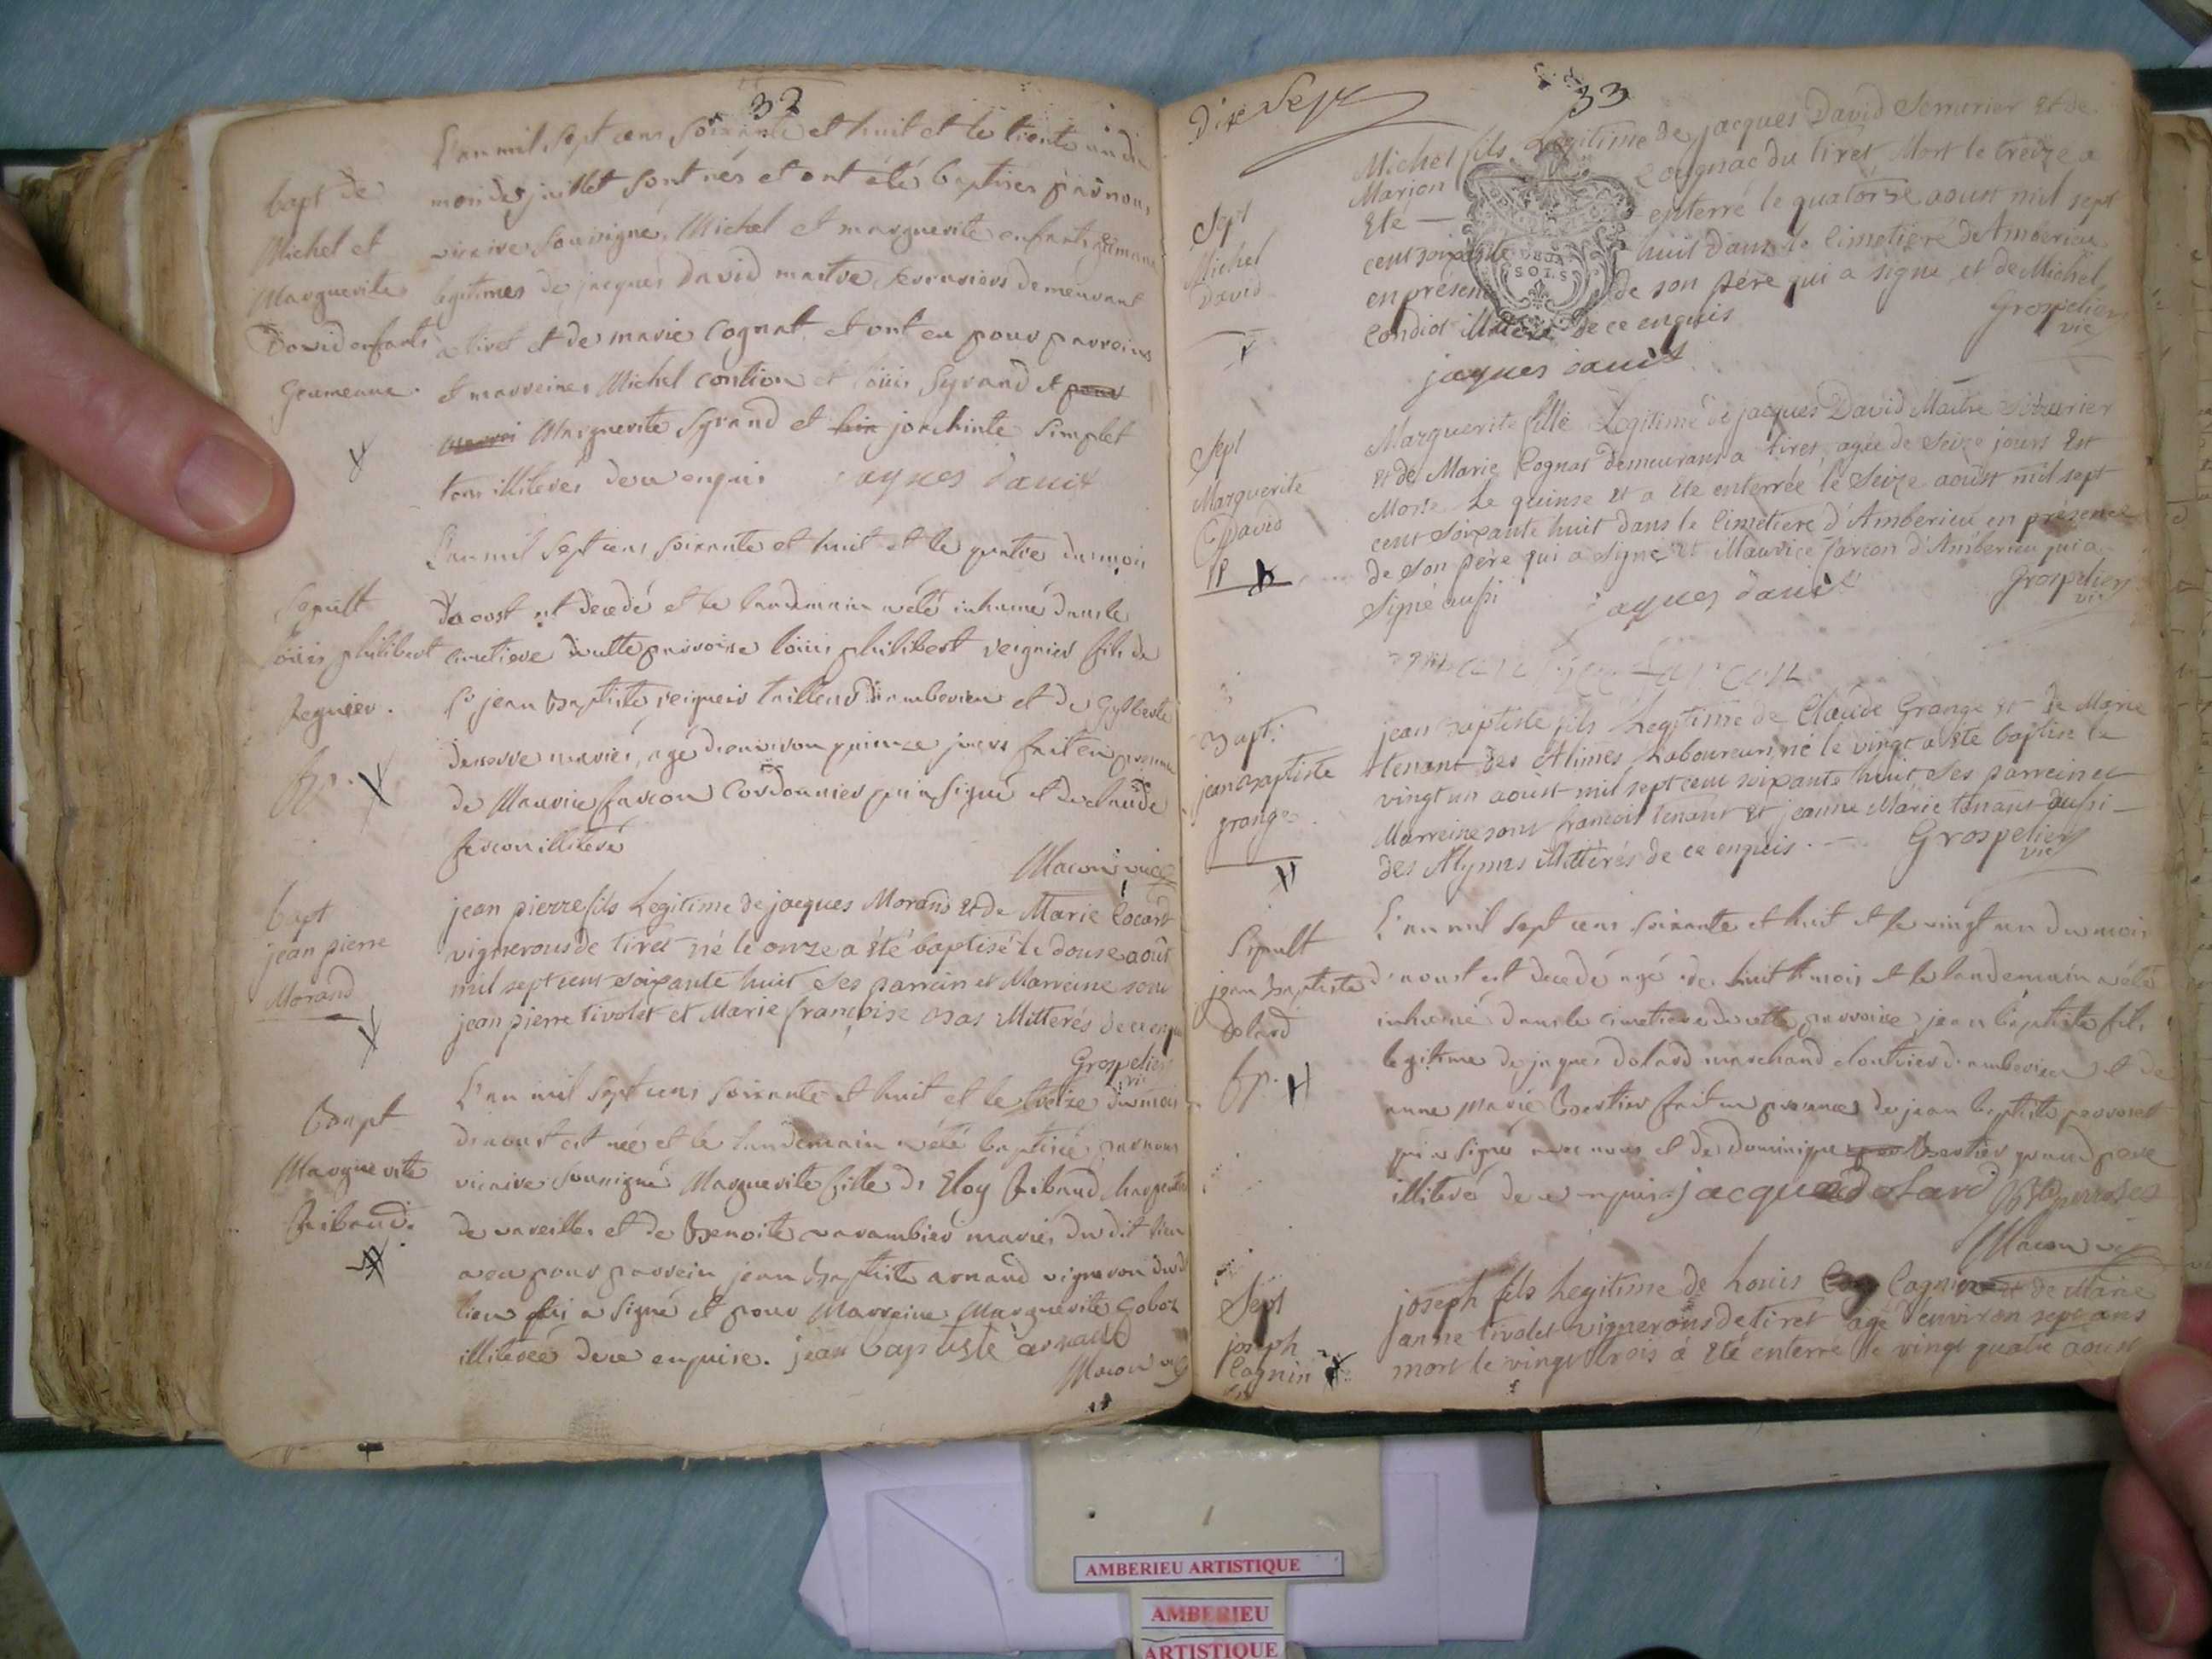 32
L'an mil sept cens soixante et huit et le trente un du
bapt de
mois de juillet sont nés et ont été baptisés par nous
Michel et
vicaire soussigné, Michel et marguerite enfants gemeaux
Marguerite
legitimes de jacques David maitre serrurier demeurant
David enfants
a tiret et de marie Cognat, et ont eu pour parreins
Gemeaux.
et marreines Michel contion et loüis Syrand et
Marguerite Syrand et joachinte Simplet
tous illiterés de ce enquis jaques dauit
L'an mil sept cens soixante et huit et le quatre du mois
Sepult
d'aoust est decedé et le landemain a été inhumé dans le
loüis philibert
cimetiere de cette parroisse loüis philibert reignier fils de
Regnier.
Sr jean Baptiste reignier tailleur d'amberieu et de Gylberte
mariés, agé d'environ quinze jours fait en presence
de Maurice farcon Cordonnier qui a signé et de claude
farcon illiteré
Macon vic
bapt
jean pierre
Morand
jean pierre fils Legitime de jacques Morand et de Marie Cocard
vignerons de tiret né le onze a été baptisé le douse août
mil sept cent soixante huit Ses parrein et Marreine sont
jean pierre tivolet et Marie françoise Bas illitterés de ce enquis
Grospelier
vic
L'an mil sept cens soixante et huit et le treize du mois
Bapt
d'aoust est née et le landemain a été baptisée par nous
Marguerite
vicaire soussigné Marguerite fille de Eloy Ribaud charpentier
Ribaud.
de vareilles et de Benoite varambier mariés du dit lieu
a eu pour parrein jean Baptiste arnaud vigneron dudit
lieu qui a signé et pour Marreine Marguerite Goboz
illiterée de ce enquise. jean baptiste arnaud
Macon vic
Dix Sept
33
Michel fils Legitime de jacques David Serrurier et de
Marion Coignac du tiret Mort le treize a
Sept
Eté enterré le quatorse aoust mil sept
Michel
David
cent soixante huit dans le Cimetiere de Amberieu
en présence de son pére qui a signé et de Michel
Condiot illiteré de ce enquis
Grospelier
vic
jaques dauit
SOLS
Sept
Marguerite
David
Marguerite fille Legitime de jacques David Maitre Serrurier
et de Marie Cognat demeurans a tiret, agée de Seize jours Est
Morte Le quinse et a été enterrée le Seize aoust mil sept
cent soixante huit dans le Cimetiere d'Amberieu en présence
de son pére qui a signé et Maurice farcon d'Amberieu qui a
Signé aussi
jaques dauit
Grospelier
vic
maurice farcon
Bapt.
jean Baptiste
grange
jean Baptiste fils Legitime de Claude Grange et de Marie
tenant des Alimes Laboureurs, né le vingt a été baptisé le
vingt un aoust mil sept cent soixante huit Ses parrein et
Marreine sont francois tenant et jeanne Marie tenant aussi
des Alymes illitterés de ce enquis. Grospelier
vic
L'an mil sept cens soixante et huit et le vingt un du mois
Sepult
jean Baptiste
d'aoust est decedé agé de huit mois et le landemain a été
Dolard
inhumé dans le cimetiere de cette parroisse jean baptiste fils
legitime de jaques dolard marchand cloutier d'amberieu et de
anne marie Bertier fait en presence de jean baptiste perroset
qui a signé avec nous et de Dominique Bertier grand pere
illiteré de ce enquis. jacque dolard Bte perroset
Macon vic
Sept
joseph
Cagnin
joseph fils Legitime de Louis Cagnin et de Marie
anne tivolet vignerons de tiret agé d'environ sept ans
mort le vingt trois a été enterré le vingt quatre aoust
AMBERIEU ARTISTIQUE
AMBERIEU
ARTISTIQUE